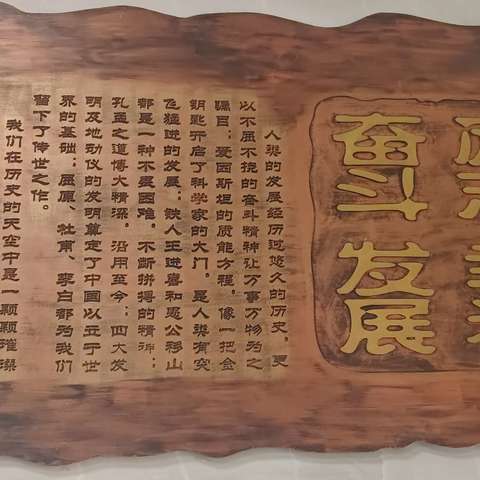 奋斗发展
人类的发展经历过悠久的历史，更
以不屈不挠的奋斗精神让万事万物为之
瞩目；爱因斯坦的质能方程，像一把金
钥匙开启了科学家的大门。是人类有突
飞猛进的发展；铁人王进喜和愚公移山
都是一种不畏困难，不断拼搏的精神；
孔孟之道博大精深，沿用至今；四大发
明及地动仪的发明奠定了中国以立于世
界的基础；屈原、杜甫、李白都为我们
留下了传世之作。
我们在历史的天空中是一颗颗璀璨